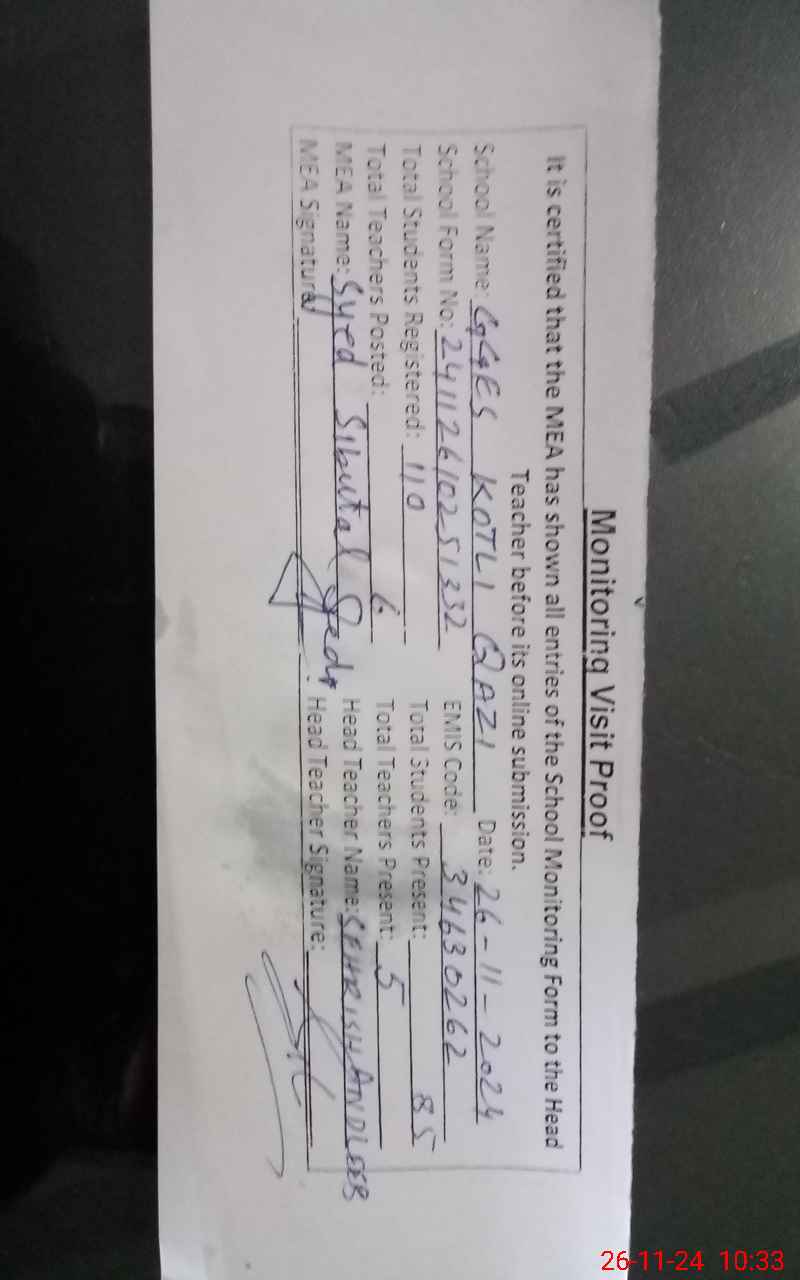 Monitoring Visit Proof
It is certified that the MEA has shown all entries of the School Monitoring Form to the Head
Teacher before its online submission.
School Name: GGES KOTLI QAZI Date: 26-11-2024
School Form No: 24112610251332 EMIS Code: 34630262
Total Students Registered: 110 Total Students Present: 85
Total Teachers Posted: 6 Total Teachers Present: 5
MEA Name: Syed Sibutal Head Teacher Name: SEHRISH ANDLEEB
MEA Signature Head Teacher Signature:
26-11-24 10:33